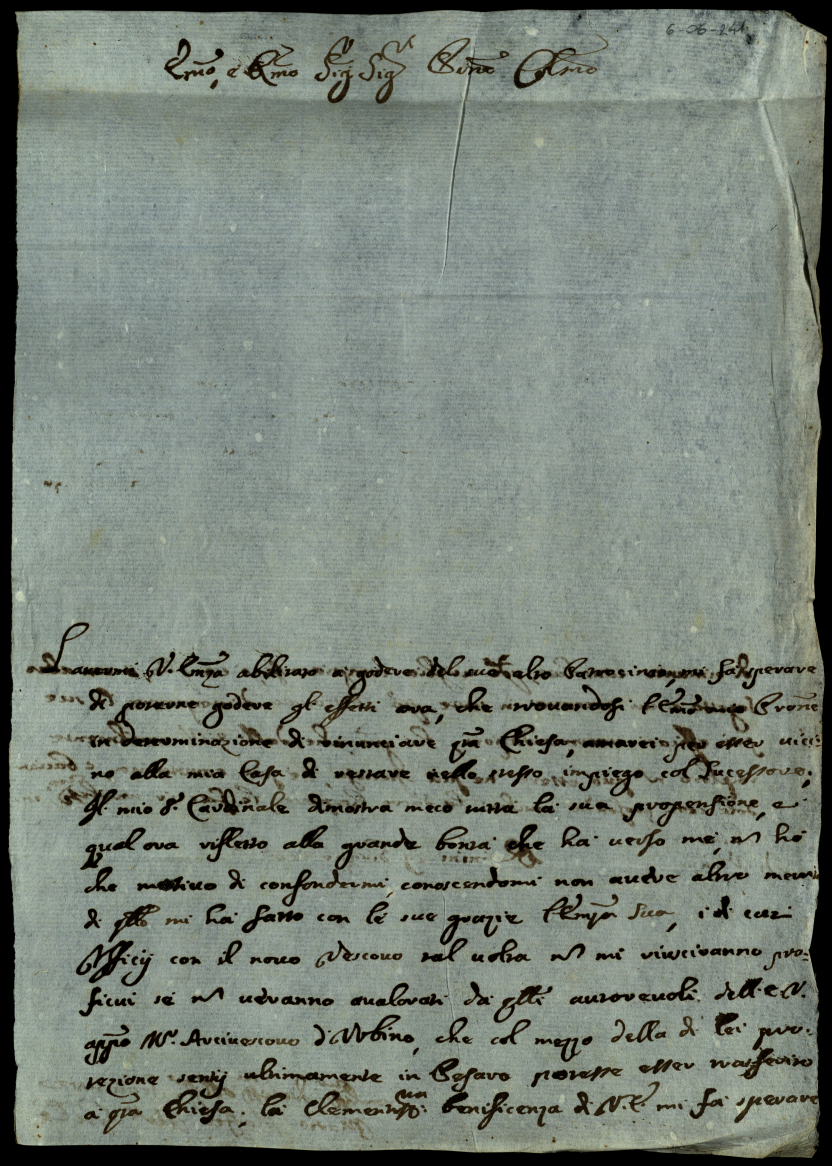 6-06-241
Emo, e Rmo Sig.r Sig.r Prone Colmo
L'avermi V. Emza abilitato a godere del suo alto Patrocinio, mi fa sperare
di poterne godere gl'effetti ora, che trovandosi l'Emo mio Prone
in determinazione di rinunciare qta Chiesa, amarei per esser vici:
no alla mia Casa di restare nello stesso impiego col Sucessore;
Il mio S.r Cardinale dimostra meco tutta la sua propensione, e
qual ora rifletto alla grande bontà che ha verso me, nn ho
che motivo di confondermi, conoscendomi non avere altro merito
di qllo mi ha fatto con le sue grazie l'Emza Sua, i di cui
Officij con il novo Vescovo tal volta nn mi riusciranno pro:
ficui se nn veranno avalorati da qlli autorevoli dell'E.V.
appo Mr. Arcivescovo d'Urbino, che col mezzo della di lei pro:
tezione sentij ultimamente in Pesaro potesse esser trasferito
a qta Chiesa; la Clementissma benificenza di V.E. mi fa sperare